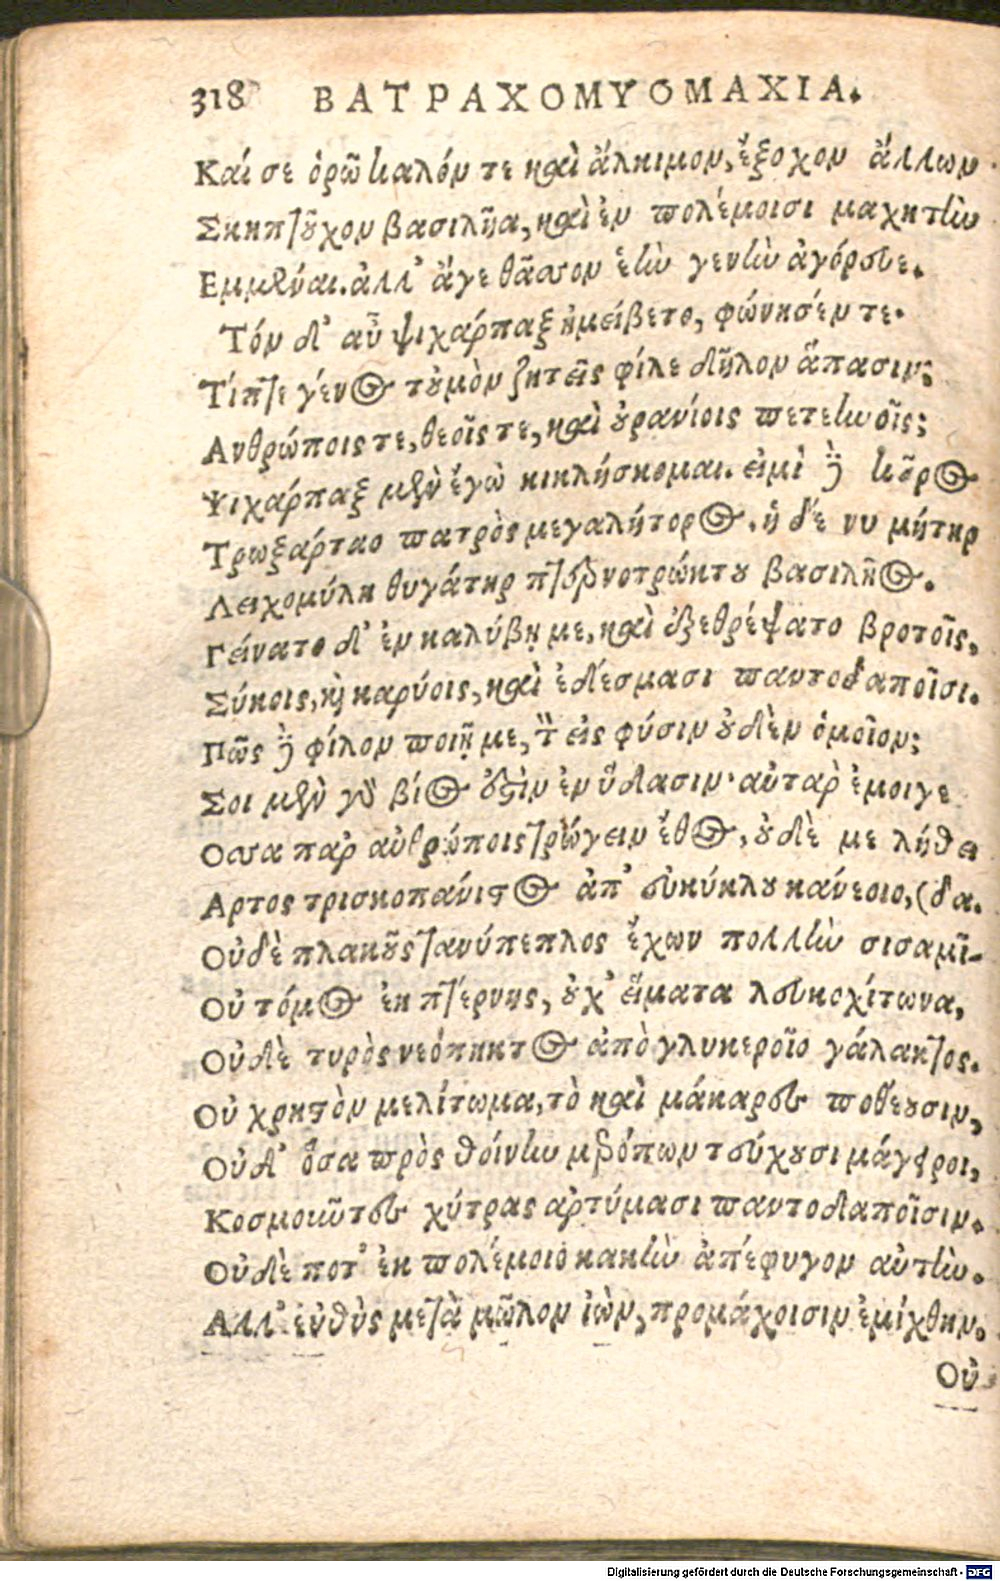 318 ΒΑΤΡΑΧΟΜΥΟΜΑΧΙΑ.
Καί σε ὁρῶ καλόν τε καὶ ἄλκιμον, ἔξοχον ἄλλων
Σκηπτοῦχον βασιλῆα, καὶ ἐν πολέμοισι μαχητὴν
Εμμέναι. ἀλλ' ἄγε θᾶσσον ἑὴν γενεὴν ἀγόρευε.
Τόν δ' αὖ ψιχάρπαξ ἠμείβετο, φώνησέν τε.
Τίπτε γένος τοὐμὸν ζητεῖς φίλε δῆλον ἅπασιν;
Ανθρώποις τε, θεοῖς τε, καὶ οὐρανίοις πετεηνοῖς;
Ψιχάρπαξ μὲν ἐγὼ κικλήσκομαι. εἰμὶ δὲ κοῦρος
Τρωξάρταο πατρὸς μεγαλήτορος, ἡ δέ νυ μήτηρ
Λειχομύλη θυγάτηρ πτερνοτρώκτου βασιλῆος.
Γείνατο δ' ἐν καλύβῃ με, καὶ ἐξεθρέψατο βροτοῖς,
Σύκοις, καὶ καρύοις, καὶ ἐδέσμασι παντοδαποῖσι.
Πῶς δὲ φίλον ποιῇ με, τὸν εἰς φύσιν οὐδὲν ὁμοῖον;
Σοι μὲν γὰρ βίος ἐστὶν ἐν ὕδασιν· αὐτὰρ ἐμοιγε
Οσσα παρ ἀνθρώποις τρώγειν ἔθος, οὐδὲ με λήθει
Αρτος τρισκοπάνιστος ἀπ' εὐκύκλου κανέοιο, (δα.
Οὐδὲ πλακοῦς τανύπεπλος ἔχων πολλὴν σισαμῖ-
Οὐ τόμος ἐκ πτέρνης, οὐχ' εἵματα λευκοχίτωνα,
Οὐδὲ τυρὸς νεόπηκτος ἀπὸ γλυκεροῖο γάλακτος.
Οὐ χρηστὸν μελίτωμα, τὸ καὶ μάκαρες ποθέουσιν,
Οὐδ' ὅσα πρὸς θοίνην μερόπων τεύχουσι μάγειροι,
Κοσμοῦντες χύτρας ἀρτύμασι παντοδαποῖσιν.
Οὐδὲ ποτ' ἐκ πολέμοιο κακὴν ἀπέφυγον αὐτὴν.
Αλλ' εὐθὺς μετὰ μῶλον ἰὼν, προμάχοισιν ἐμίχθην.
Οὐ
Digitalisierung gefördert durch die Deutsche Forschungsgemeinschaft - DFG